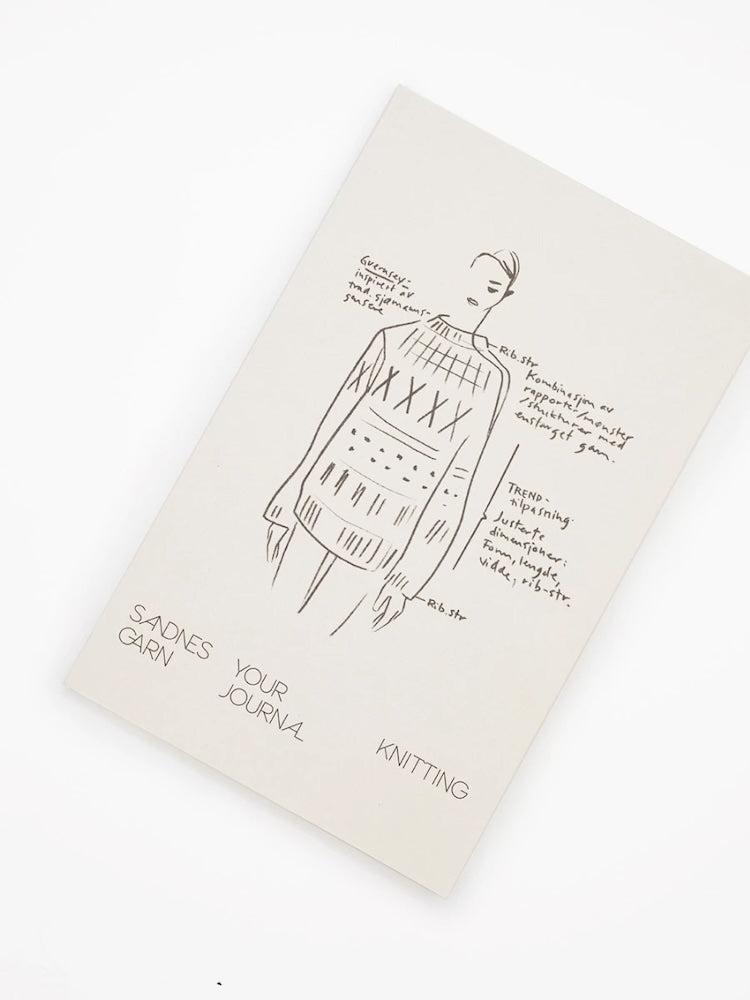 Guernsey-
inspirert av
trad. sjømanns-
gensere
Rib.str
Kombinasjon av
rapporter/mønster
/strukturer med
ensfarget garn.
TREND-
tilpasning.
Justerte
dimensjoner:
Form, lengde,
vidde, rib-str.
Rib.str
SANDNES
GARN
YOUR
JOURNAL
KNITTING